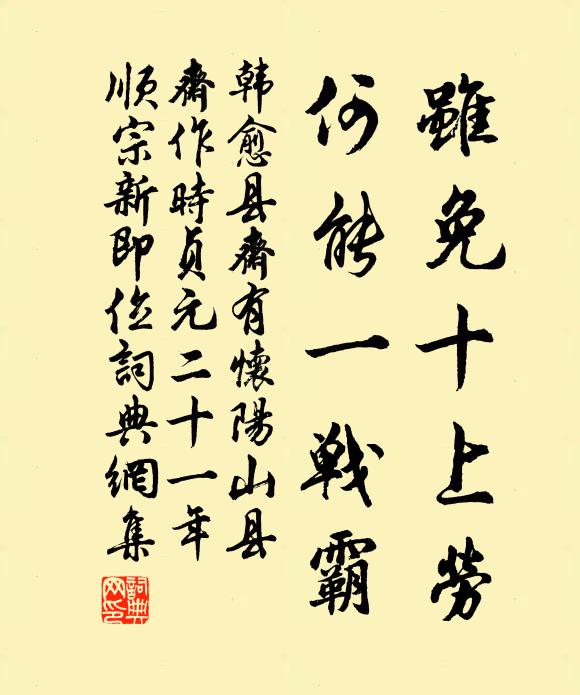 雖免十上勞
何能一戰霸
韩愈县齋有懷陽山县
齋作時貞元二十一年
順宗新即位詞典網集
詞典网印